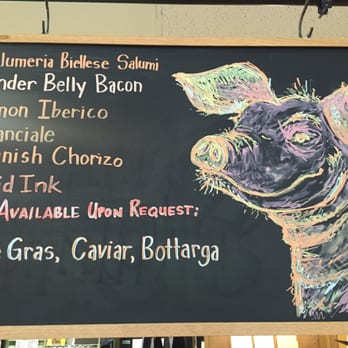 lumeria Biellese Salumi
nder Belly Bacon
mon Iberico
anciale
nish Chorizo
id Ink
Available Upon Request:
Gras, Caviar, Bottarga